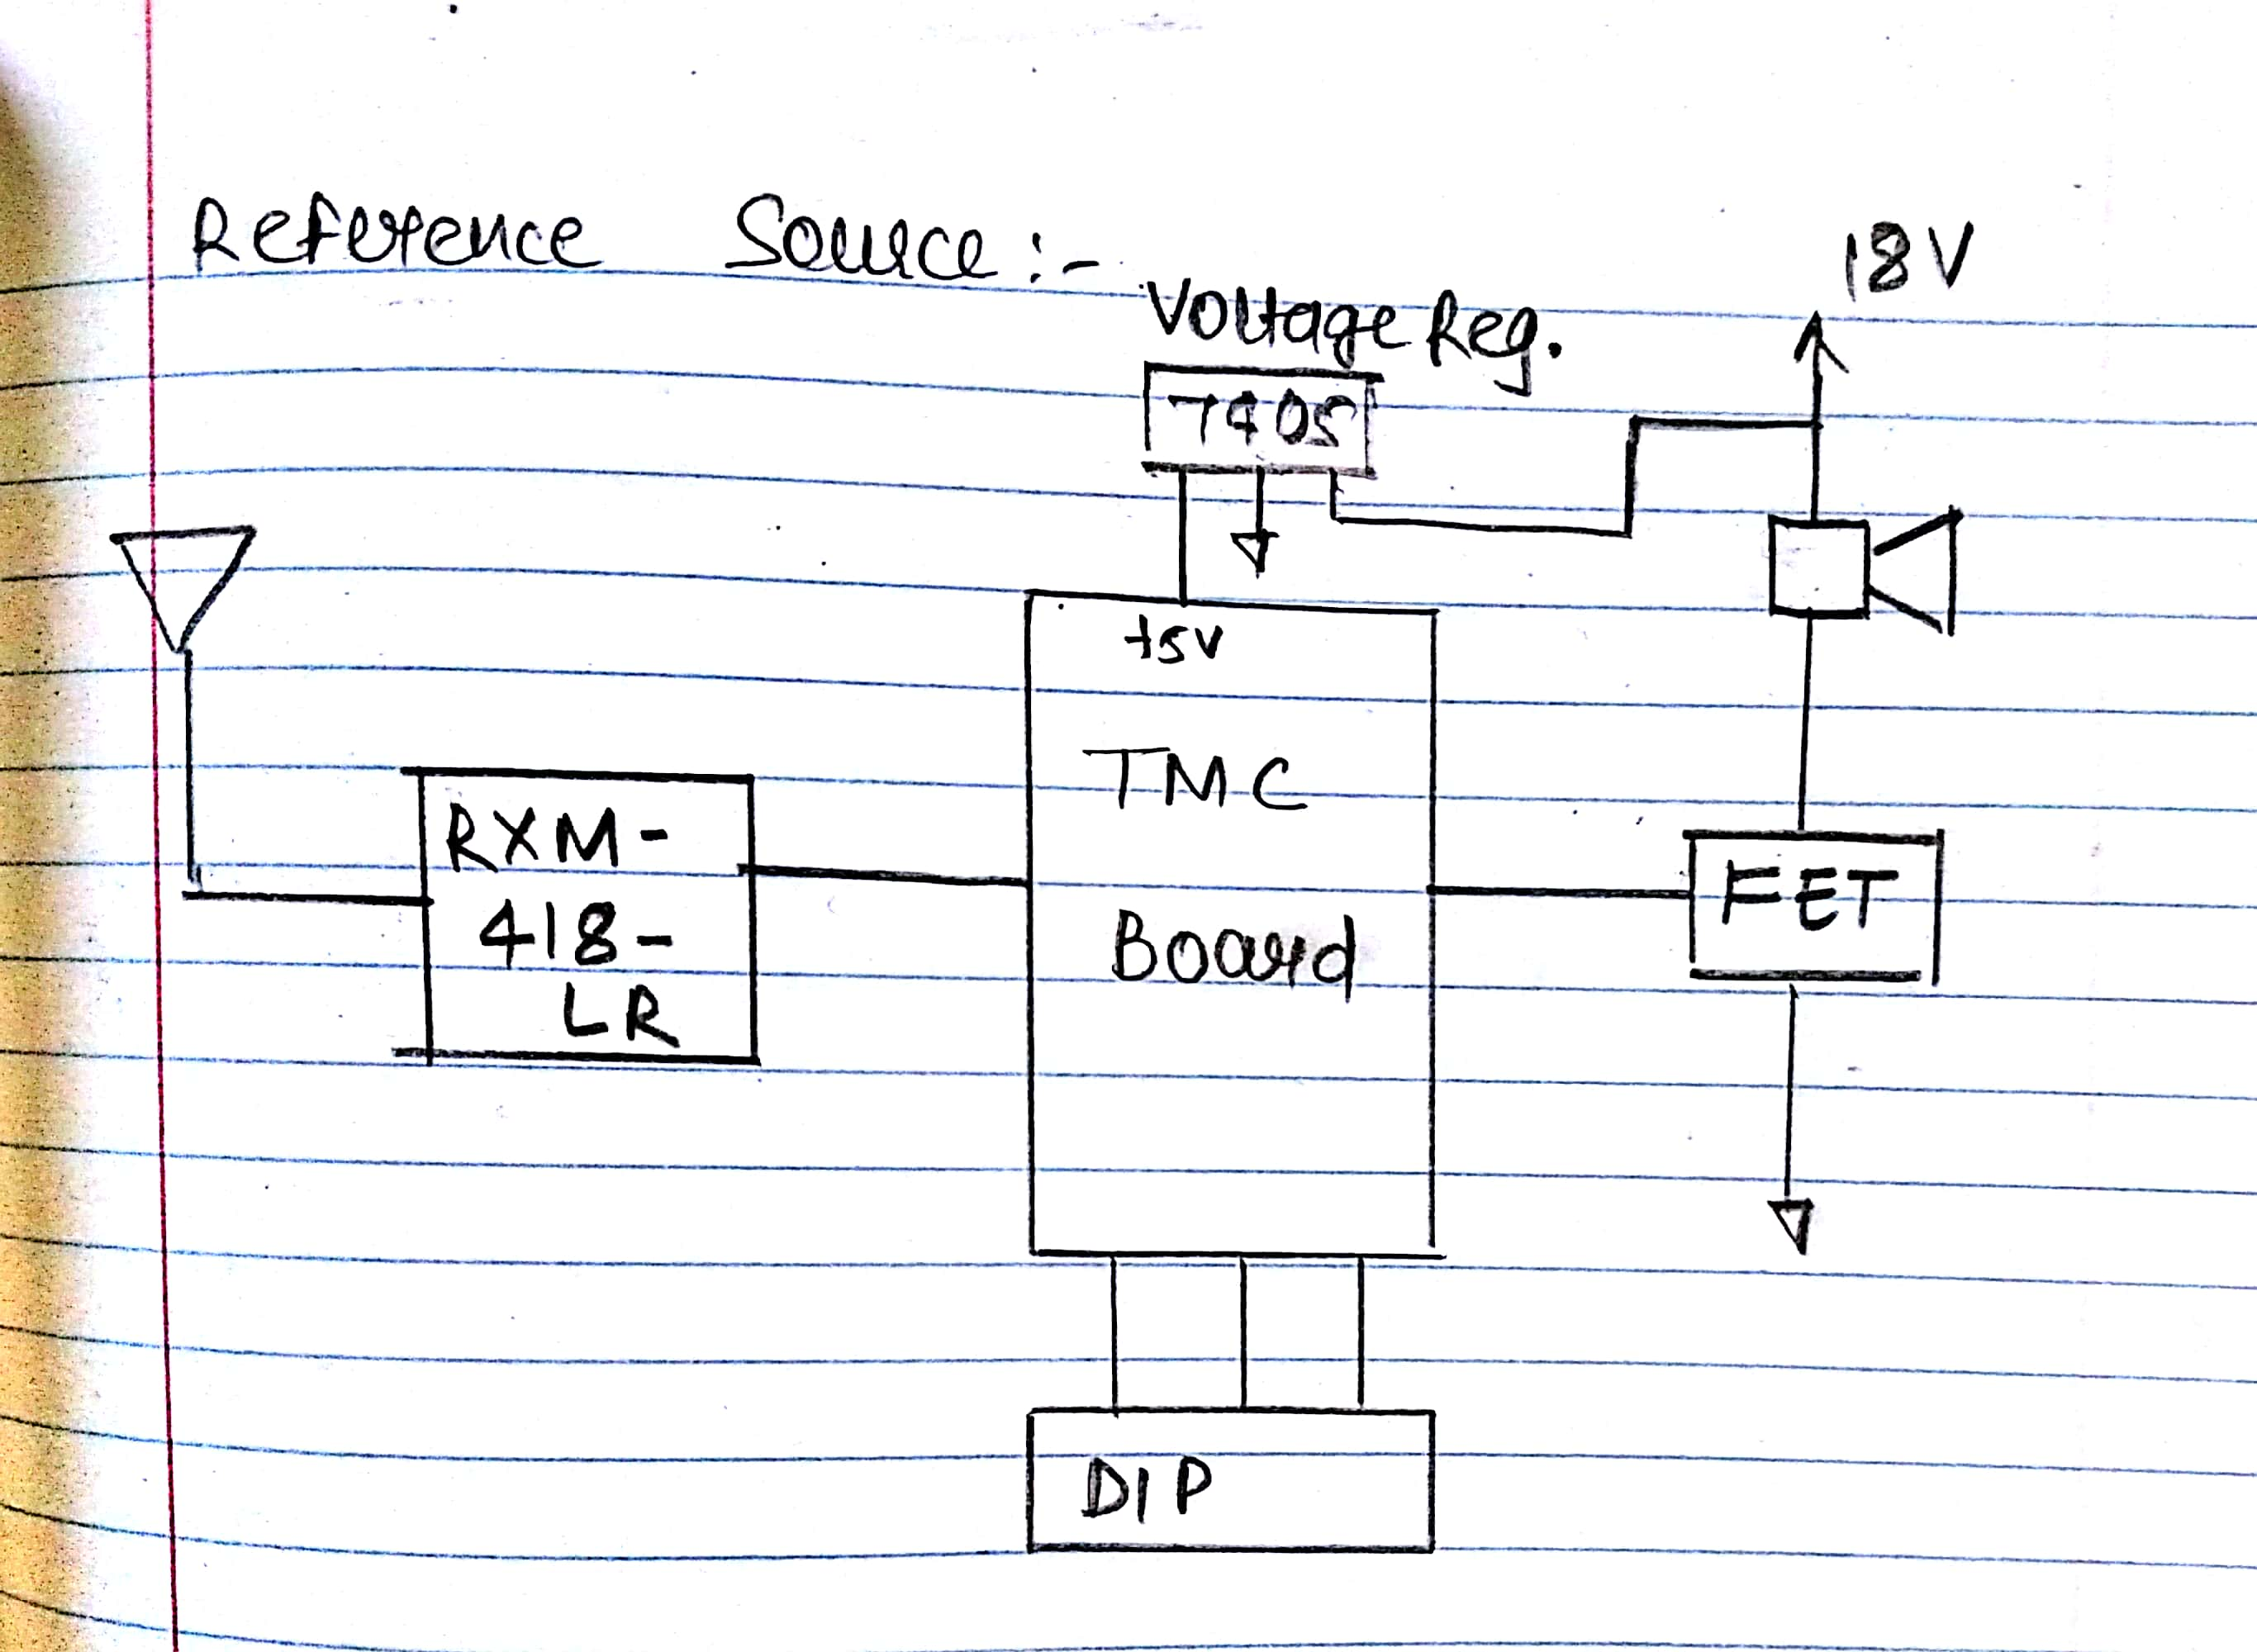 Reference Source :-
18V
Voltage Reg.
7405
+5V
TMC
Board
RXM-
418-
LR
FET
DIP